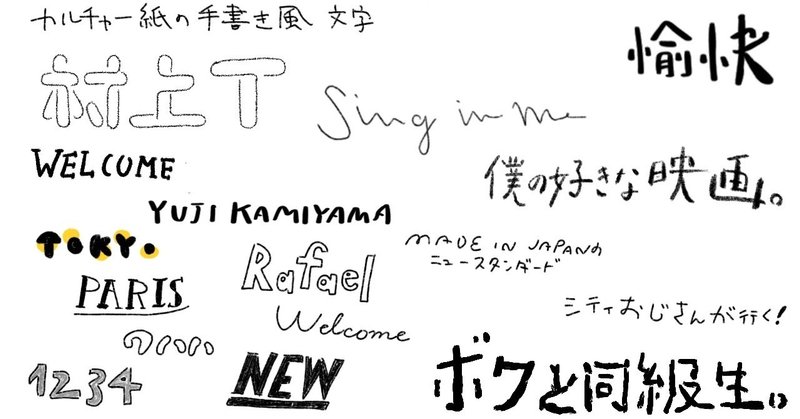 カルチャー紙の手書き風 文字
愉快
村上T
Sing in me
WELCOME
僕の好きな映画。
YUJI KAMIYAMA
TOKYO
MADE IN JAPANの
ニュースタンダード
Rafael
PARIS
シティおじさんが行く!
Welcome
1234
NEW
ボクと同級生。